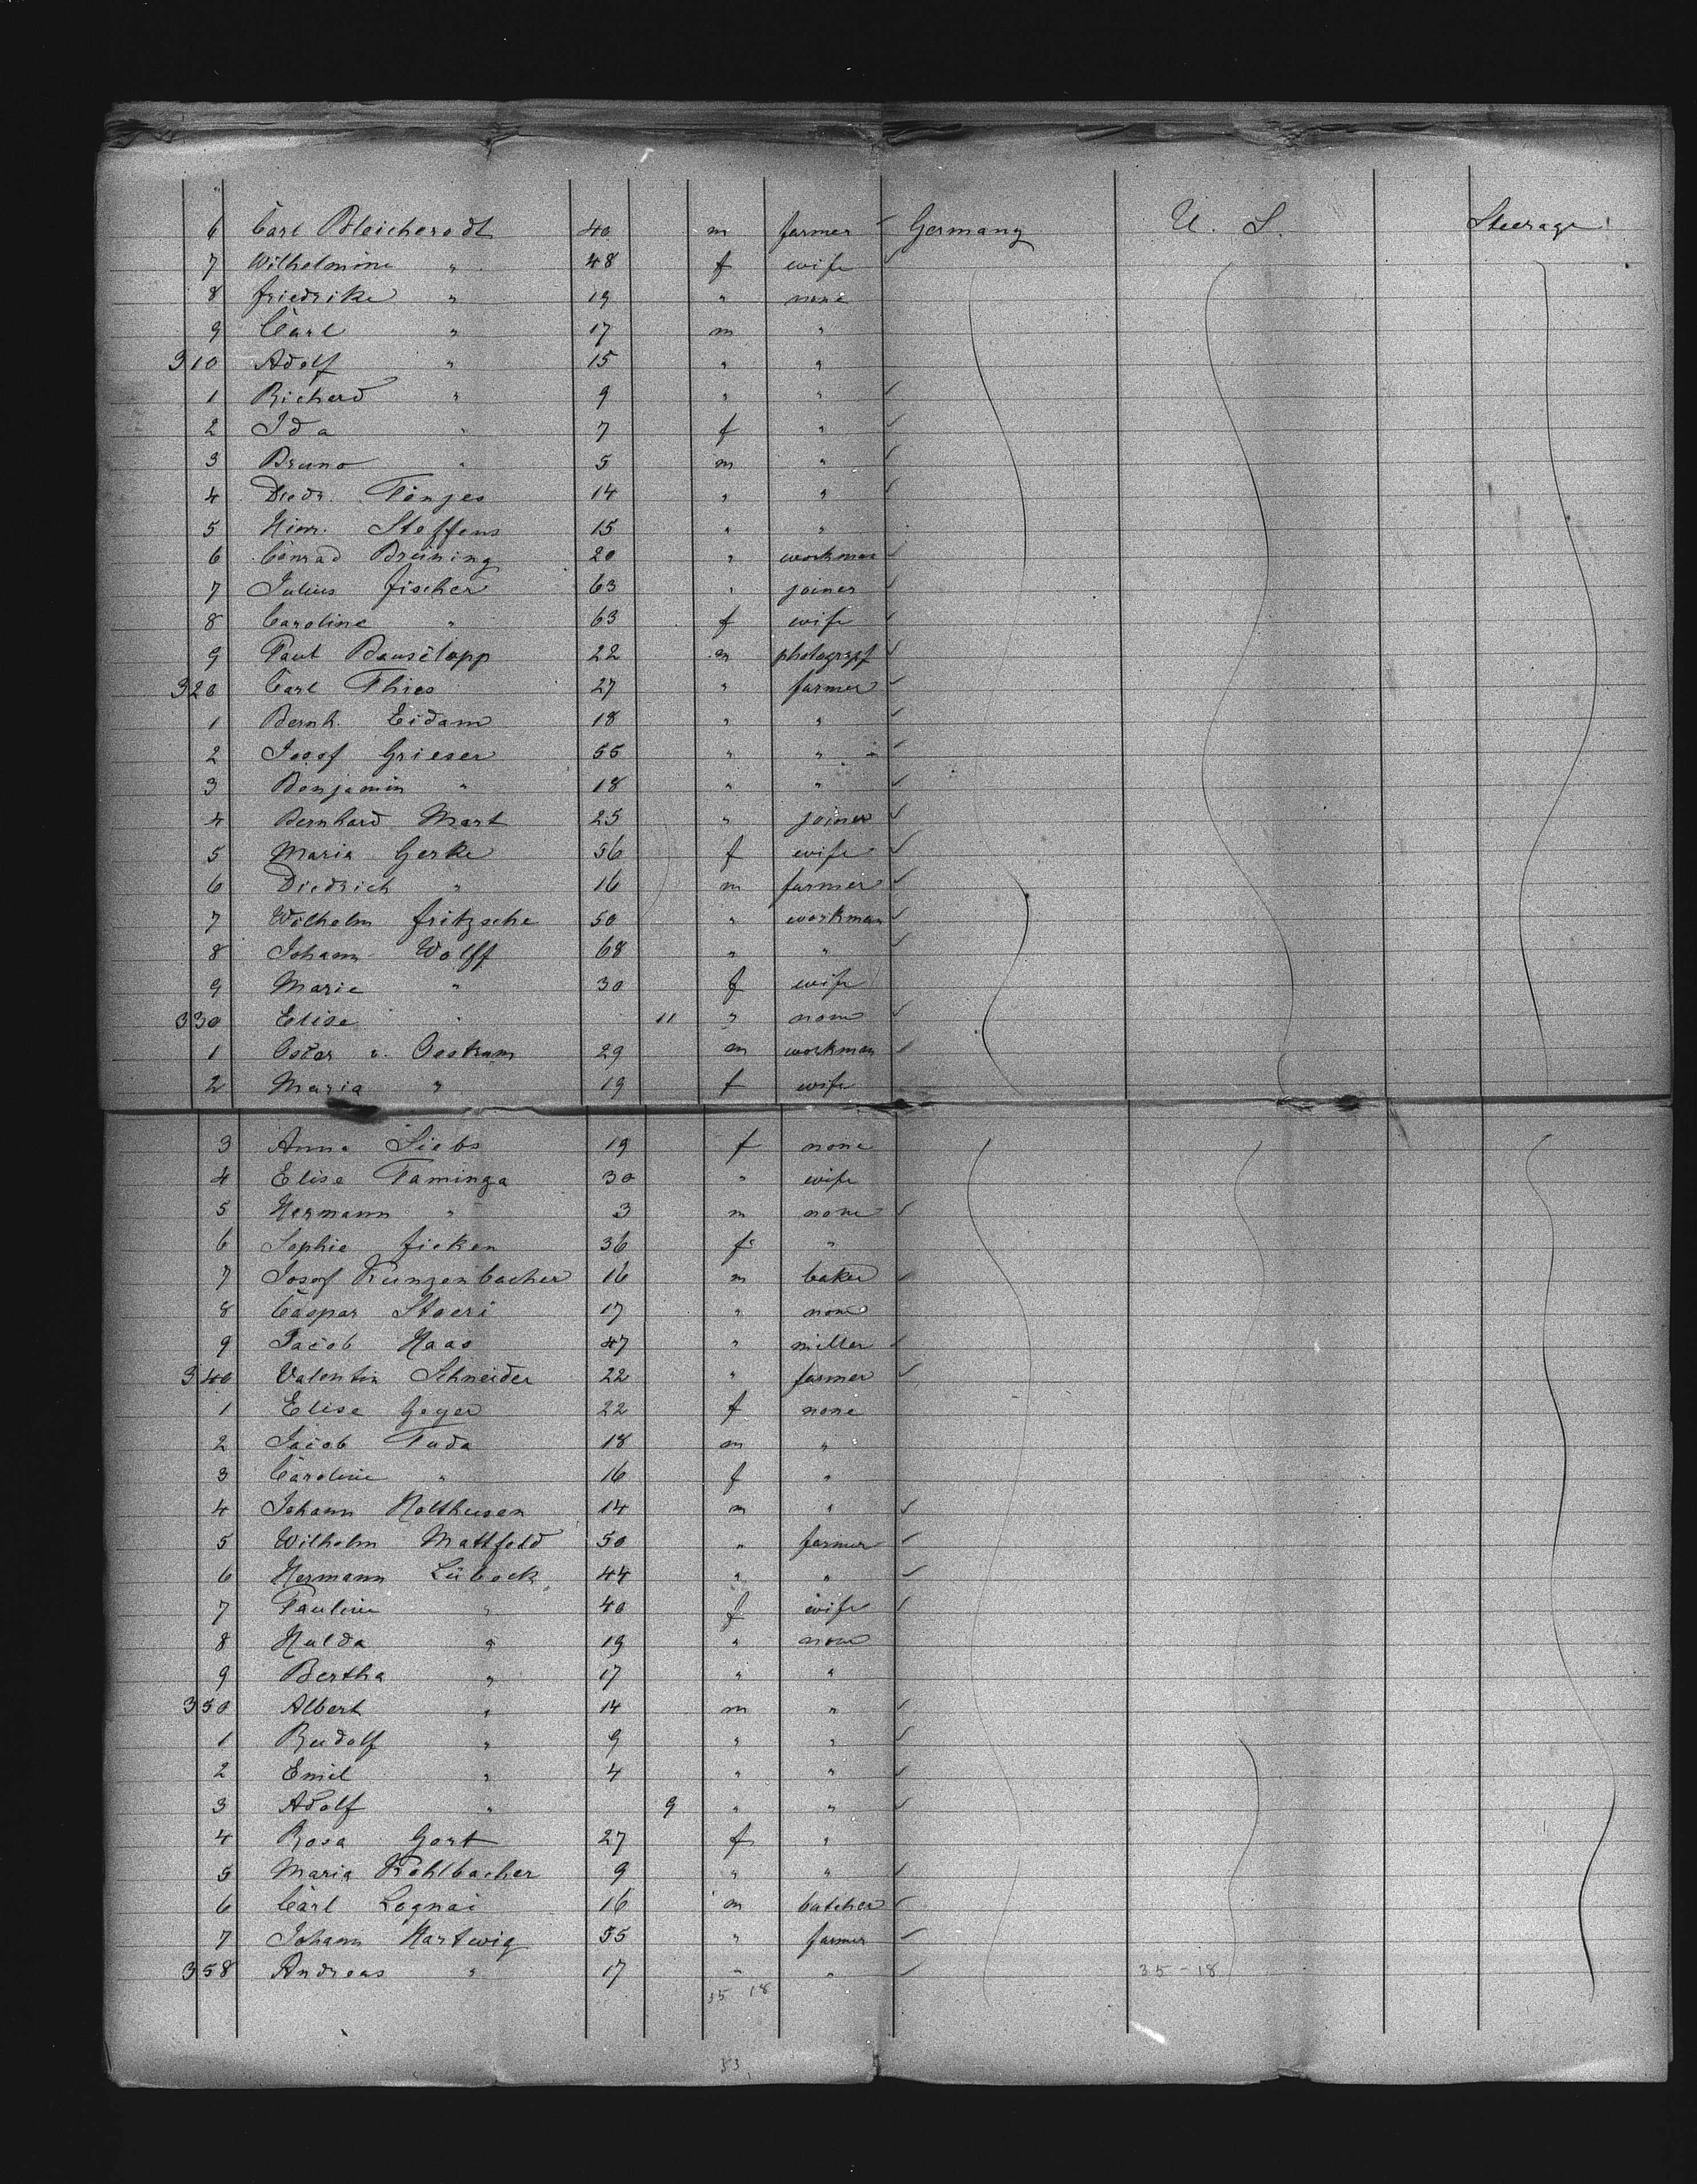 6 Carl Bleicherodt 40 m farmer Germany U. S. Steerage
7 Wilhelmine " 48 f wife
8 Friedrike " 19 " none
9 Carl " 17 m "
310 Adolf " 15 " "
1 Richard " 9 " "
2 Ida " 7 f "
3 Bruno " 5 m "
4 Diedr. Tönjes 14 " "
5 Hinr. Steffens 15 " "
6 Conrad Breining 20 " workman
7 Julius Fischer 63 " joiner
8 Caroline " 63 f wife
9 Paul 22 m photograpf
320 Carl Thies 27 " farmer
1 Bernh. Eidam 18 " "
2 Josef Grieser 55 " "
3 Benjamin " 18 " "
4 Bernhard Mart 25 " joiner
5 Maria Gerke 56 f wife
6 Diedrich " 16 m farmer
7 Wilhelm Fritzsche 50 " workman
8 Johann Wolff 68 " "
9 Marie " 30 f wife
330 Elise " 11 " none
1 v. 29 m workman
2 Maria " 19 f wife
3 Anna Siebs 19 f none
4 Elise Taminga 30 " wife
5 Hermann " 3 m none
6 Sophie Ficken 36 f "
7 Josef Kunzenbacher 16 m baker
8 Caspar Stoeri 17 " none
9 Jacob Haas 47 " miller
340 Valentin Schneider 22 " farmer
1 Elise Geyer 22 f none
2 Jacob 18 m "
3 Caroline " 16 f "
4 Johann Holthusen 14 m "
5 Wilhelm Mattfeld 50 " farmer
6 Hermann Lübeck 44 " "
7 Pauline " 40 f wife
8 Hulda " 19 " none
9 Bertha " 17 " "
350 Albert " 14 m "
1 Rudolf " 9 " "
2 Emil " 4 " "
3 Adolf " 9 " "
4 Rosa Gort 27 f "
5 Maria Kohlbacher 9 " "
6 Carl 16 m butcher
7 Johann Hartwig 55 " farmer
358 Andreas " 17 " " 35-18
35 18
53